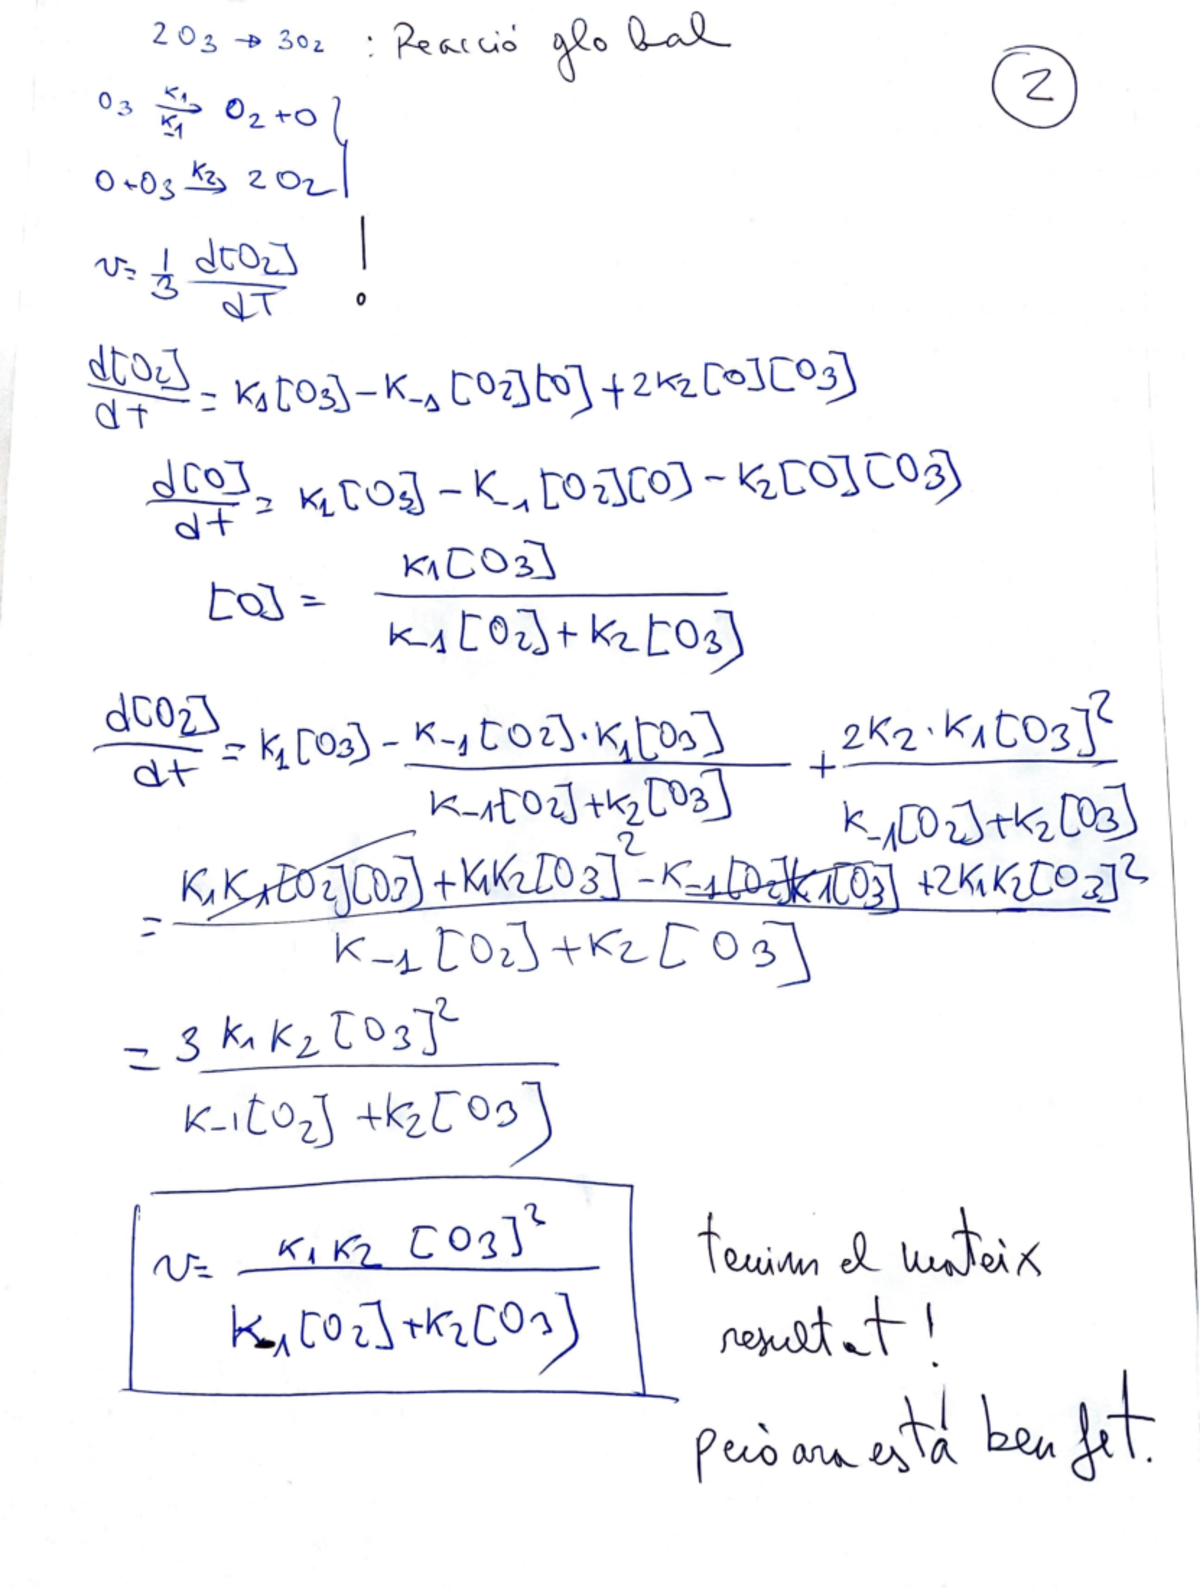 2O3 → 3O2 : Reacció global
2
O3 ⇌ O2 + O
K1
K-1
O + O3 →K2 2O2
v = 1/3 d[O2]/dT !
d[O2]/dt = K1[O3] - K-1[O2][O] + 2K2[O][O3]
d[O]/dt = K1[O3] - K-1[O2][O] - K2[O][O3]
[O] = K1[O3] / K-1[O2] + K2[O3]
d[O2]/dt = K1[O3] - K-1[O2]·K1[O3] / K-1[O2] + K2[O3] + 2K2·K1[O3]² / K-1[O2] + K2[O3]
= K1K-1[O2][O3] + K1K2[O3]² - K-1[O2]K1[O3] + 2K1K2[O3]² / K-1[O2] + K2[O3]
= 3K1K2[O3]² / K-1[O2] + K2[O3]
v = K1K2[O3]² / K-1[O2] + K2[O3]
tenim el mateix
resultat!
però ara està ben fet.